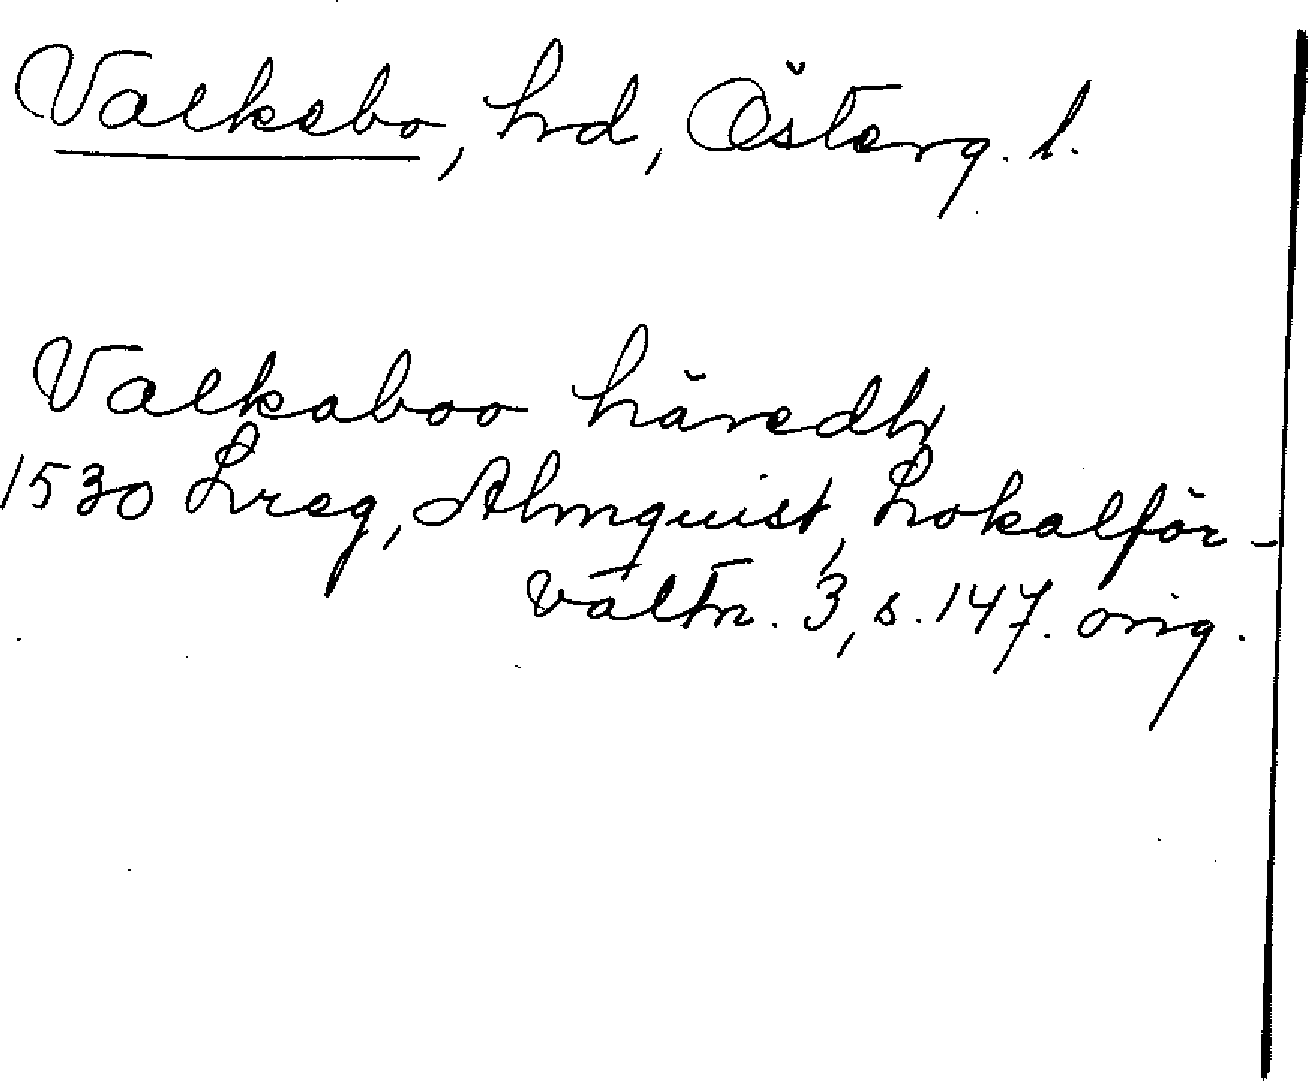 Valkebo, hd, Österg. l.
Valkaboo häredh
1530 Lreg, Almquist, Lokalför-
valtn. 3, s. 147. orig.